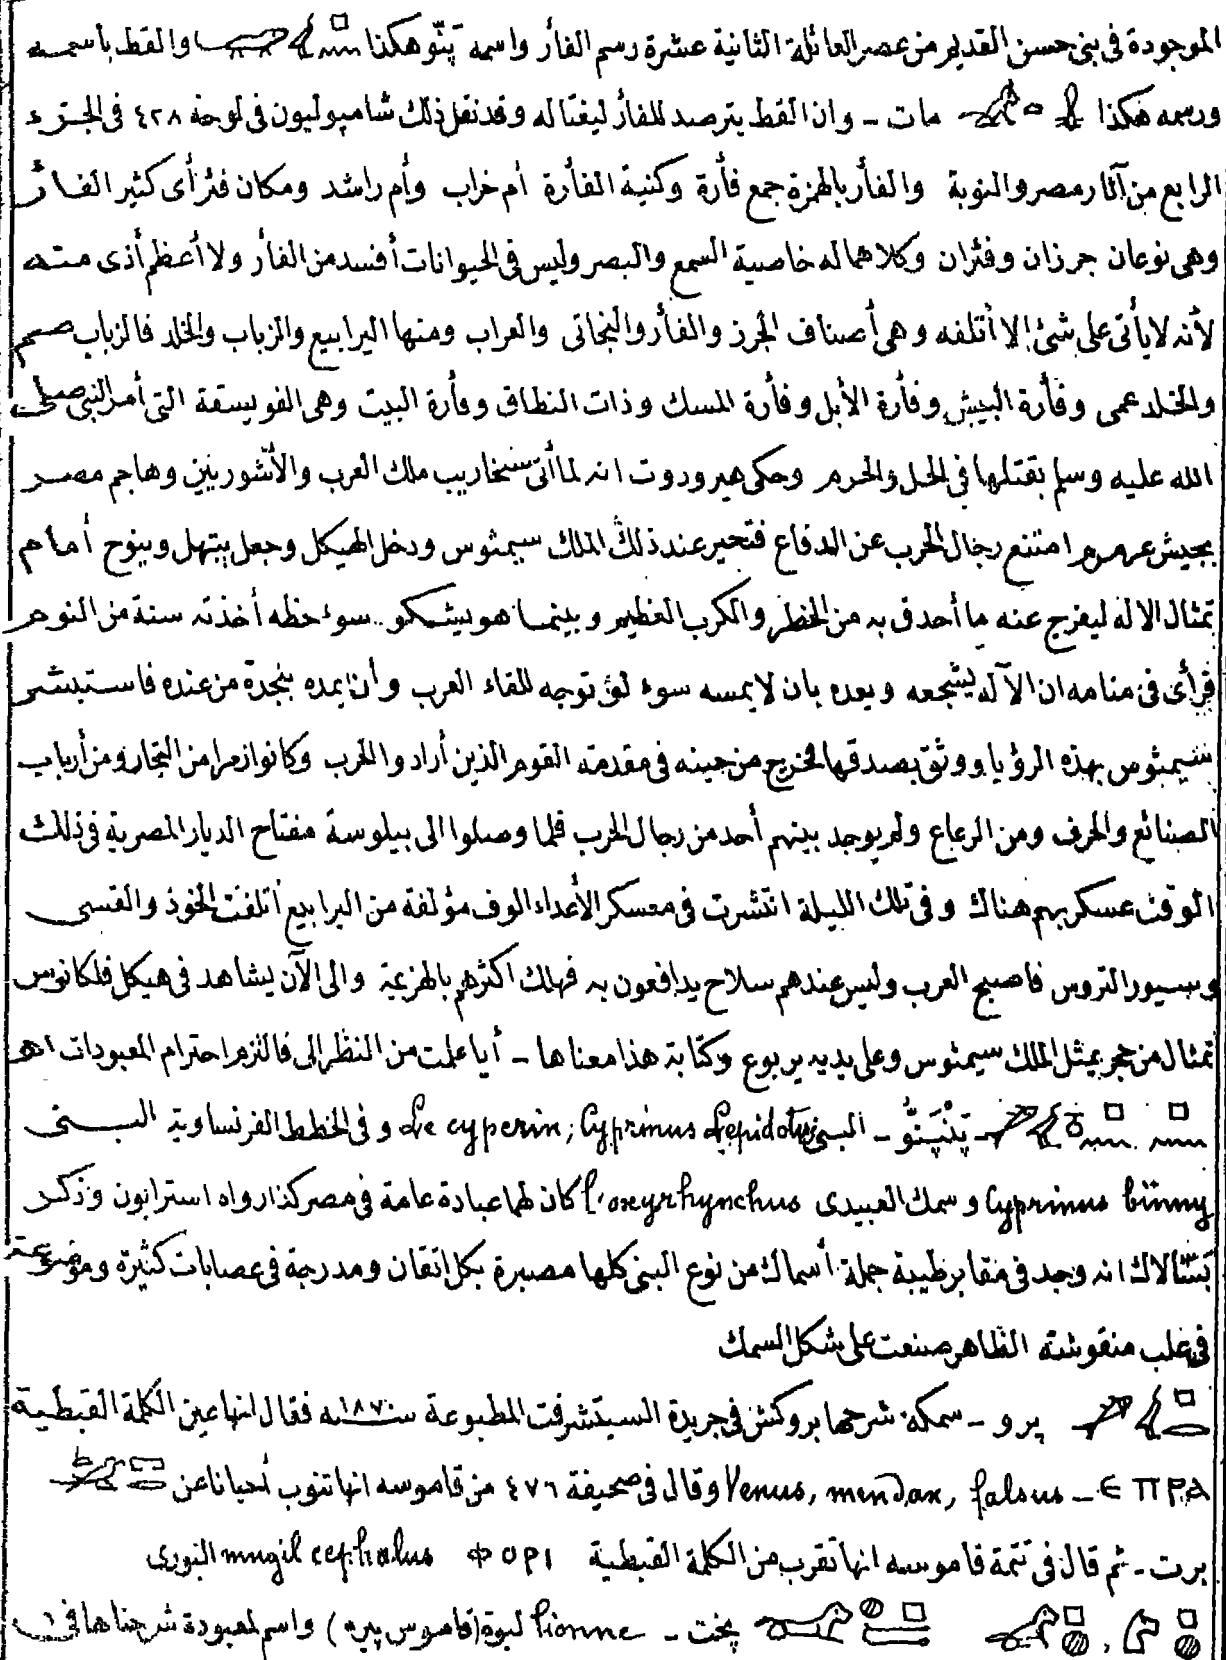 الموجودة فى بنى حسن القديم من عصر العائلة الثانية عشرة رسم الفأر واسمه پَنّو هكذا والقط باسمه
ورسمه هكذا مات - وان القط يترصد للفأر ليغتاله وقد نقل ذلك شامپوليون فى لوحة ٤٢٨ فى الجزء
الرابع من آثار مصر والنوبة والفأر بالهمزة جمع فأرة وكنية الفأرة أم خراب وأم راشد ومكان فئر أى كثير الفأر
وهى نوعان جرزان وفئران وكلاهما له خاصية السمع والبصر وليس فى الحيوانات أفسد من الفأر ولا أعظم أذى منه
لأنه لا يأتى على شئ إلا أتلفه وهى أصناف الجرز والفأر والبخاتى والعراب ومنها اليرابيع والزباب والخلد فالزباب صم
والخلد عمى وفأرة البيش وفأرة الأبل وفأرة المسك وذات النطاق وفأرة البيت وهى الفويسقة التى أمر النبى صلى
الله عليه وسلم بقتلها فى الحل والحرم وحكى هيرودوت انه لما أتى سنخاريب ملك العرب والأشوريين وهاجم مصر
بجيش عرمرم امتنع رجال الحرب عن الدفاع فتحير عند ذلك الملك سيمثوس ودخل الهيكل وجعل يبتهل وينوح أمام
تمثال الاله ليفرج عنه ما أحدق به من الخطر والكرب العظيم وبينما هو يشكو سوء حظه أخذته سنة من النوم
فرأى فى منامه ان الآله يشجعه ويعده بان لا يمسه سوء لو توجه للقاء العرب وأن يمده بنجدة من عنده فاستبشر
سيمثوس بهذه الرؤيا ووثق بصدقها فخرج من حينه فى مقدمته القوم الذين أرادوا الحرب وكانوا زمرا من التجار ومن أرباب
الصنائع والحرف ومن الرعاع ولم يوجد بينهم أحد من رجال الحرب فلما وصلوا الى بيلوسة مفتاح الديار المصرية فى ذلك
الوقت عسكر بهم هناك وفى تلك الليلة انتشرت فى معسكر الأعداء الوف مؤلفة من اليرابيع أتلفت الخوذ والقسى
وسيور التروس فاصبح العرب وليس عندهم سلاح يدافعون به فهلك اكثرهم بالهزيمة والى الآن يشاهد فى هيكل فلكانوس
تمثال من حجر يمثل الملك سيمثوس وعلى يديه يربوع وكتابة هذا معناها - أيا علمت من النظر الى فالتزم احترام المعبودات اهـ
پَنْپَنُّو - البنى Le cyperin; Cyprinus Lepidotus وفى الخطط الفرنساوية البنى
Cyprinus binny وسمك العبيدى l'oxyrhynchus كان لهما عبادة عامة فى مصر كذا رواه استرابون وذكر
پَسّالاك انه وجد فى مقابر طيبة جملة أسماك من نوع البنى كلها مصبرة بكل اتقان ومدرجة فى عصابات كثيرة وموضوعة
فى علب منقوشة الظاهر صنعت على شكل السمك
پرو - سمكة شرحها بروكش فى جريدة السيتشرفت المطبوعة سنة ١٨٧٠ فقال انها عين الكلمة القبطية
ⲉⲡⲣⲁ - Venus, mendax, falsus وقال فى صحيفة ٤٧٦ من قاموسه انها تنوب أحيانا عن
برت - ثم قال فى تتمة قاموسه انها تقرب من الكلمة القبطية ⲫⲟⲣⲓ mugil cephalus البورى
پخت - lionne لبوة (قاموس پيره) واسم لمعبودة شرحناها فى